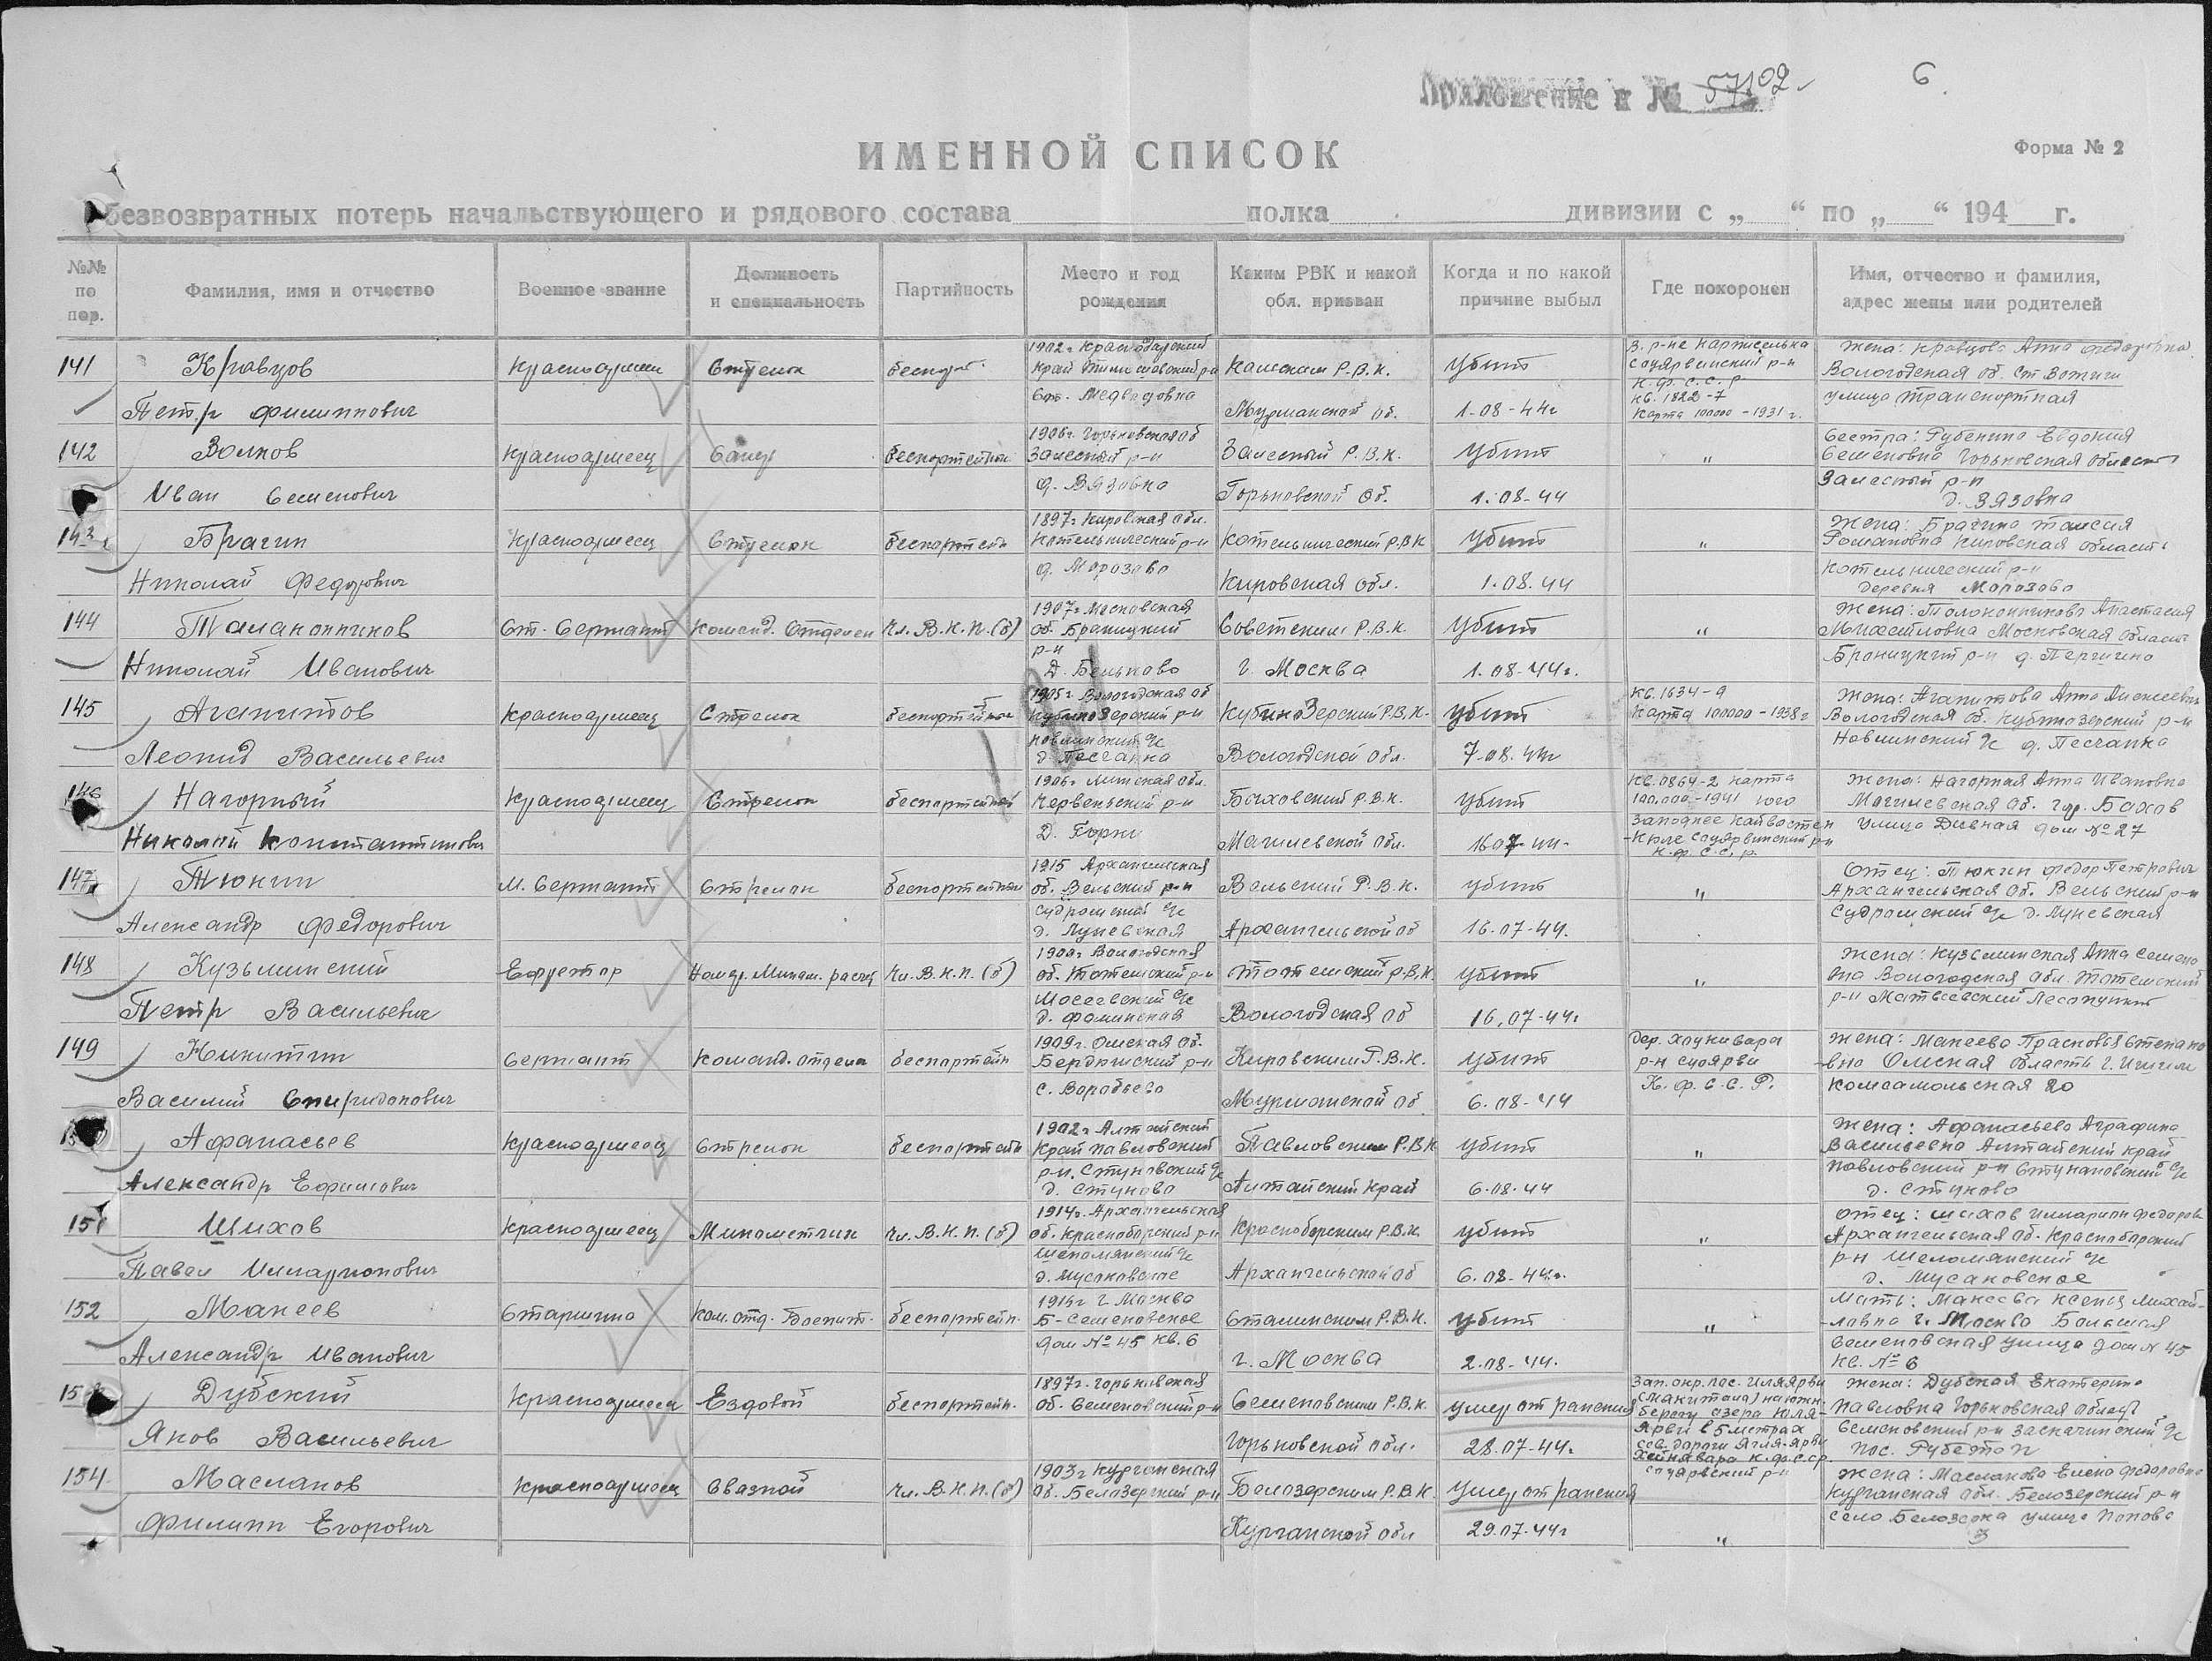 Приложение к № 57102
6
ИМЕННОЙ СПИСОК
Форма № 2
безвозвратных потерь начальствующего и рядового состава полка дивизии с „ “ по „ “ 194 г.
№№ по пор.
Фамилия, имя и отчество
Военное звание
Должность и специальность
Партийность
Место и год рождения
Каким РВК и какой обл. призван
Когда и по какой причине выбыл
Где похоронен
Имя, отчество и фамилия, адрес жены или родителей
141 Кравцов Красноармеец Стрелок беспарт. 1902 г. Краснодарский край Тимашевский р-н Кольским Р.В.К. Убит В р-не
Петр Филиппович Ст. Медведовка Мурманской об. 1-08-44г
Суоярвинский р-н К.Ф.С.С.Р. кв. 1822-7 Карта 100000-1931 г.
Жена: Кравцова Анна Федоровна Вологодская об. ст Вожеги улица Транспортная
142 Волков Красноармеец Сапер беспартейный 1906г. Горьковская об р-н Р.В.К. Убит "
Иван Семенович д. Вязовка Горьковской об. 1.08-44
Сестра: Евдокия Семеновна Горьковская область р-н
143 Брагин Красноармеец Стрелок беспартей 1897г Кировская обл. Котельнический р-н Котельнический Р.В.К Убит "
Николай Федорович д. Морозово Кировская обл. 1.08.44
Жена: Брагина Таисия Романовна Кировская область Котельнический р-н деревня Морозово
144 Талаконников Ст. Сержант Команд. Отделен Чл. В.К.П.(б) 1907г Московская об. Броницкий р-н Советским Р.В.К. Убит "
Николай Иванович Д. Бельково г. Москва 1.08-44г.
Жена: Толоконникова Анастасия Михайловна Московская область Броницкий р-н
145 Агапитов Красноармеец Стрелок беспартийный 1905г Вологодская об Кубинозерский р-н Кубинозерский Р.В.К. Убит кв. 1634-9 Карта 100000-1938г
Леонид Васильевич Новлинский с/с д. Песчанка Вологодской обл. 7-08.44г
Жена: Агапитова Анна Алексеевна Вологодская об. Кубинозерский р-н Новлинский с/с д. Песчанка
146 Нагорный Красноармеец Стрелок беспартейный 1906г Минская обл. Червеньский р-н Быховский Р.В.К. Убит
Николай Константинович Д. Горки Могилевской обл. 16 07 44-
Кв. 0864-2 карта 100.000-1941 юго западнее Суоярвинский р-н К.Ф.С.С.Р.
Жена: Нагорная Анна Ивановна Могилевская об. гор. Быхов улица дом № 27
147 Тюкин М. Сержант Стрелок беспартейный 1915 Архангельская об. Вельский р-н Вельский Р.В.К. убит "
Александр Федорович Судромский с/с д. Луневская Архангельской об 16.07-44.
Отец: Тюкин Федор Петрович Архангельская об. Вельский р-н Судромский с/с д. Луневская
148 Кузьминский Ефрейтор Чл. В.К.П.(б) 1900г Вологодская об. Тотемский р-н Тотемский р.в.к. Убит "
Петр Васильевич Мосеевский с/с д. Фоминская Вологодская об 16.07-44г
Жена: Кузьминская Анна Семеновна Вологодская обл. Тотемский р-н Матвеевский Лесопункт
149 Никитин Сержант Команд. отделен беспартейн 1909г. Омская об. Бердюжский р-н Кировским Р.В.К. Убит
Василий Спиридонович Мурманской об 6.08-44
Дер. Хаукивара р-н Суоярви К.Ф.С.С.Р.
Жена: Макеева Прасковья Степановна Омская область г. Ишим Комсомольская 20
150 Афанасьев Красноармеец Стрелок беспартейн 1902г Алтайский край Павловский р-н Павловским Р.В.К Убит "
Александр Ефимович Стуковский с/с д. Стуково Алтайский край 6.08.44
Жена: Афанасьева Аграфина Васильевна Алтайский край Павловский р-н д. Стуково
151 Шихов Красноармеец Минометчик Чл. В.К.П.(б) 1914г. Архангельская об. Красноборский р-н Красноборским Р.В.К. убит "
Павел Илларионович Шеломянский с/с д. Мусаковское Архангельской об 6.08-44г.
Отец: Шихов Илларион Федоров Архангельская об. Красноборский р-н Шеломянский с/с д. Мусаковское
152 Макеев Старшина Ком. отд. беспартейн. г Москва Б-Семеновское Сталинским Р.В.К. Убит "
Александр Иванович дом № 45 кв. 6 г. Москва 2.08-44.
Мать: Макеева Ксения Михайловна г. Москва Большая Семеновская улица дом № 45 Кв. № 6
Дубский Красноармеец Ездовой беспартейн. 1897г. Горьковская об. Семеновский р-н Семеновским Р.В.К. умер от ранения
Яков Васильевич Горьковской обл. 28.07-44г.
Зап. окр. пос. на южн. берегу озера в 5 метрах сев. дороги К.Ф.С.С.Р. Суоярвский р-н
Жена: Дубская Екатерина Павловна Горьковская область Семеновский р-н с/с пос.
154 Масланов Красноармеец Связной Чл. В.К.П.(б) 1903г Курганская об. Белозерский р-н Белозерским Р.В.К. Умер от ранения "
Филипп Егорович Курганской обл 29.07-44г
Жена: Масланова Елена Федоровна Курганская обл. Белозерский р-н село Белозерка улица Попова 3